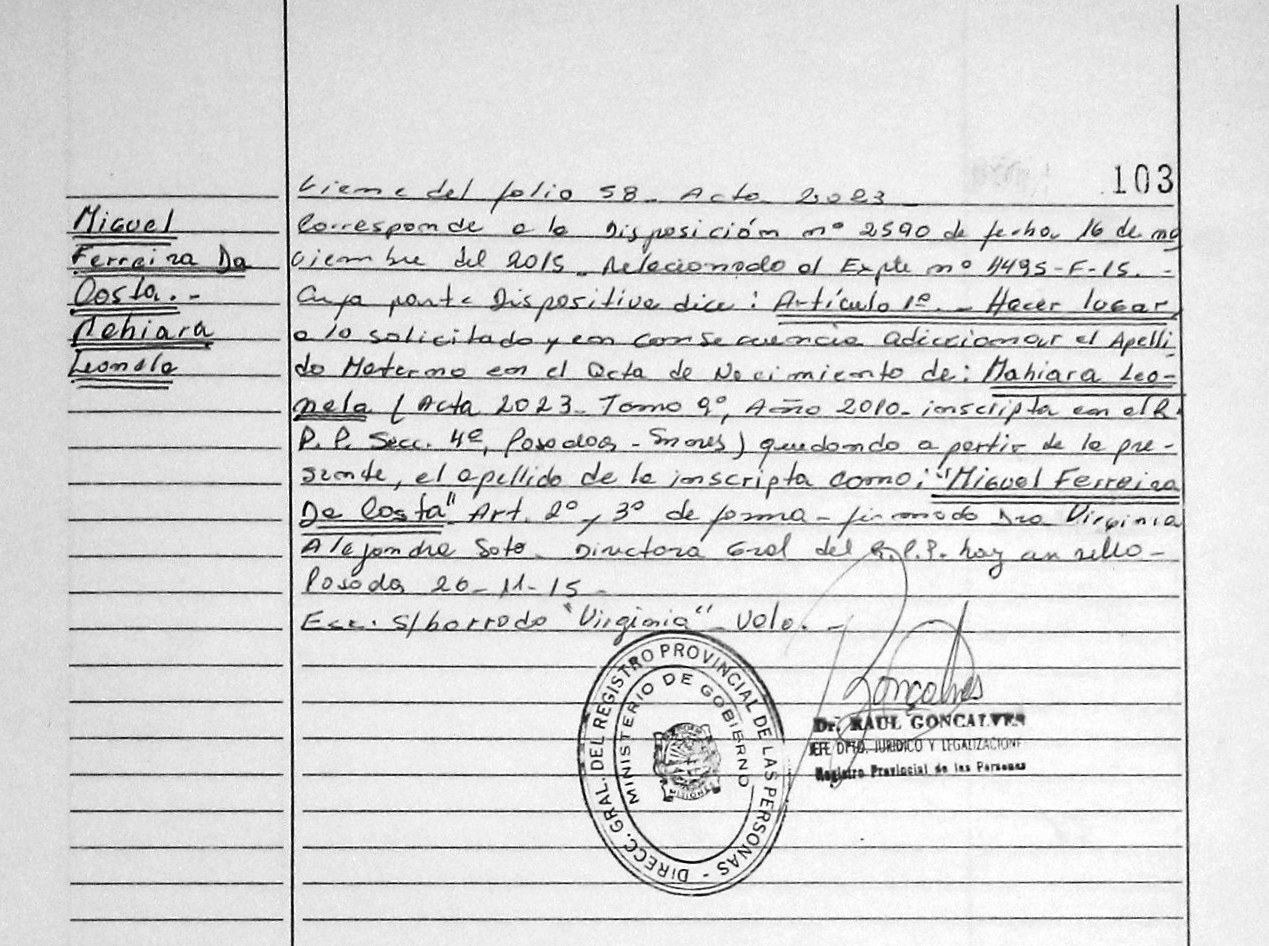 103
Viene del folio 58_ Acta 2023_
Miguel
Ferreira Da
Costa._
Mahiara
Leonela
Corresponde a la Disposición nº 2590 de fecha, 16 de no
viembre del 2015_ Relacionado al Expte nº 4495-F-15._
Cuya parte Dispositiva dice: Artículo 1º_ Hacer lugar
a lo solicitado y en consecuencia adiccionar el Apelli
do Materno en el Acta de Nacimiento de: Mahiara Leo-
nela (Acta 2023_ Tomo 9º, Año 2010_ inscripta en el R.
P. P. Secc. 4º, Posadas - Mnes) quedando a partir de la pre-
sente, el apellido de la inscripta como: "Miguel Ferreira
Da Costa" Art. 2º y 3º de forma_ firmado Dra Virginia
Alejandra Soto_ Directora Gral del R.P.P. hay un sello_
Posadas 26-11-15_
Esc. s/borrado "Virginia"_ Vale._
DIRECC. GRAL. DEL REGISTRO PROVINCIAL DE LAS PERSONAS -
MINISTERIO DE GOBIERNO
MISIONES
Goncalves
Dr. RAUL GONCALVES
JEFE DPTO. JURIDICO Y LEGALIZACIONE
Registro Provincial de las Personas